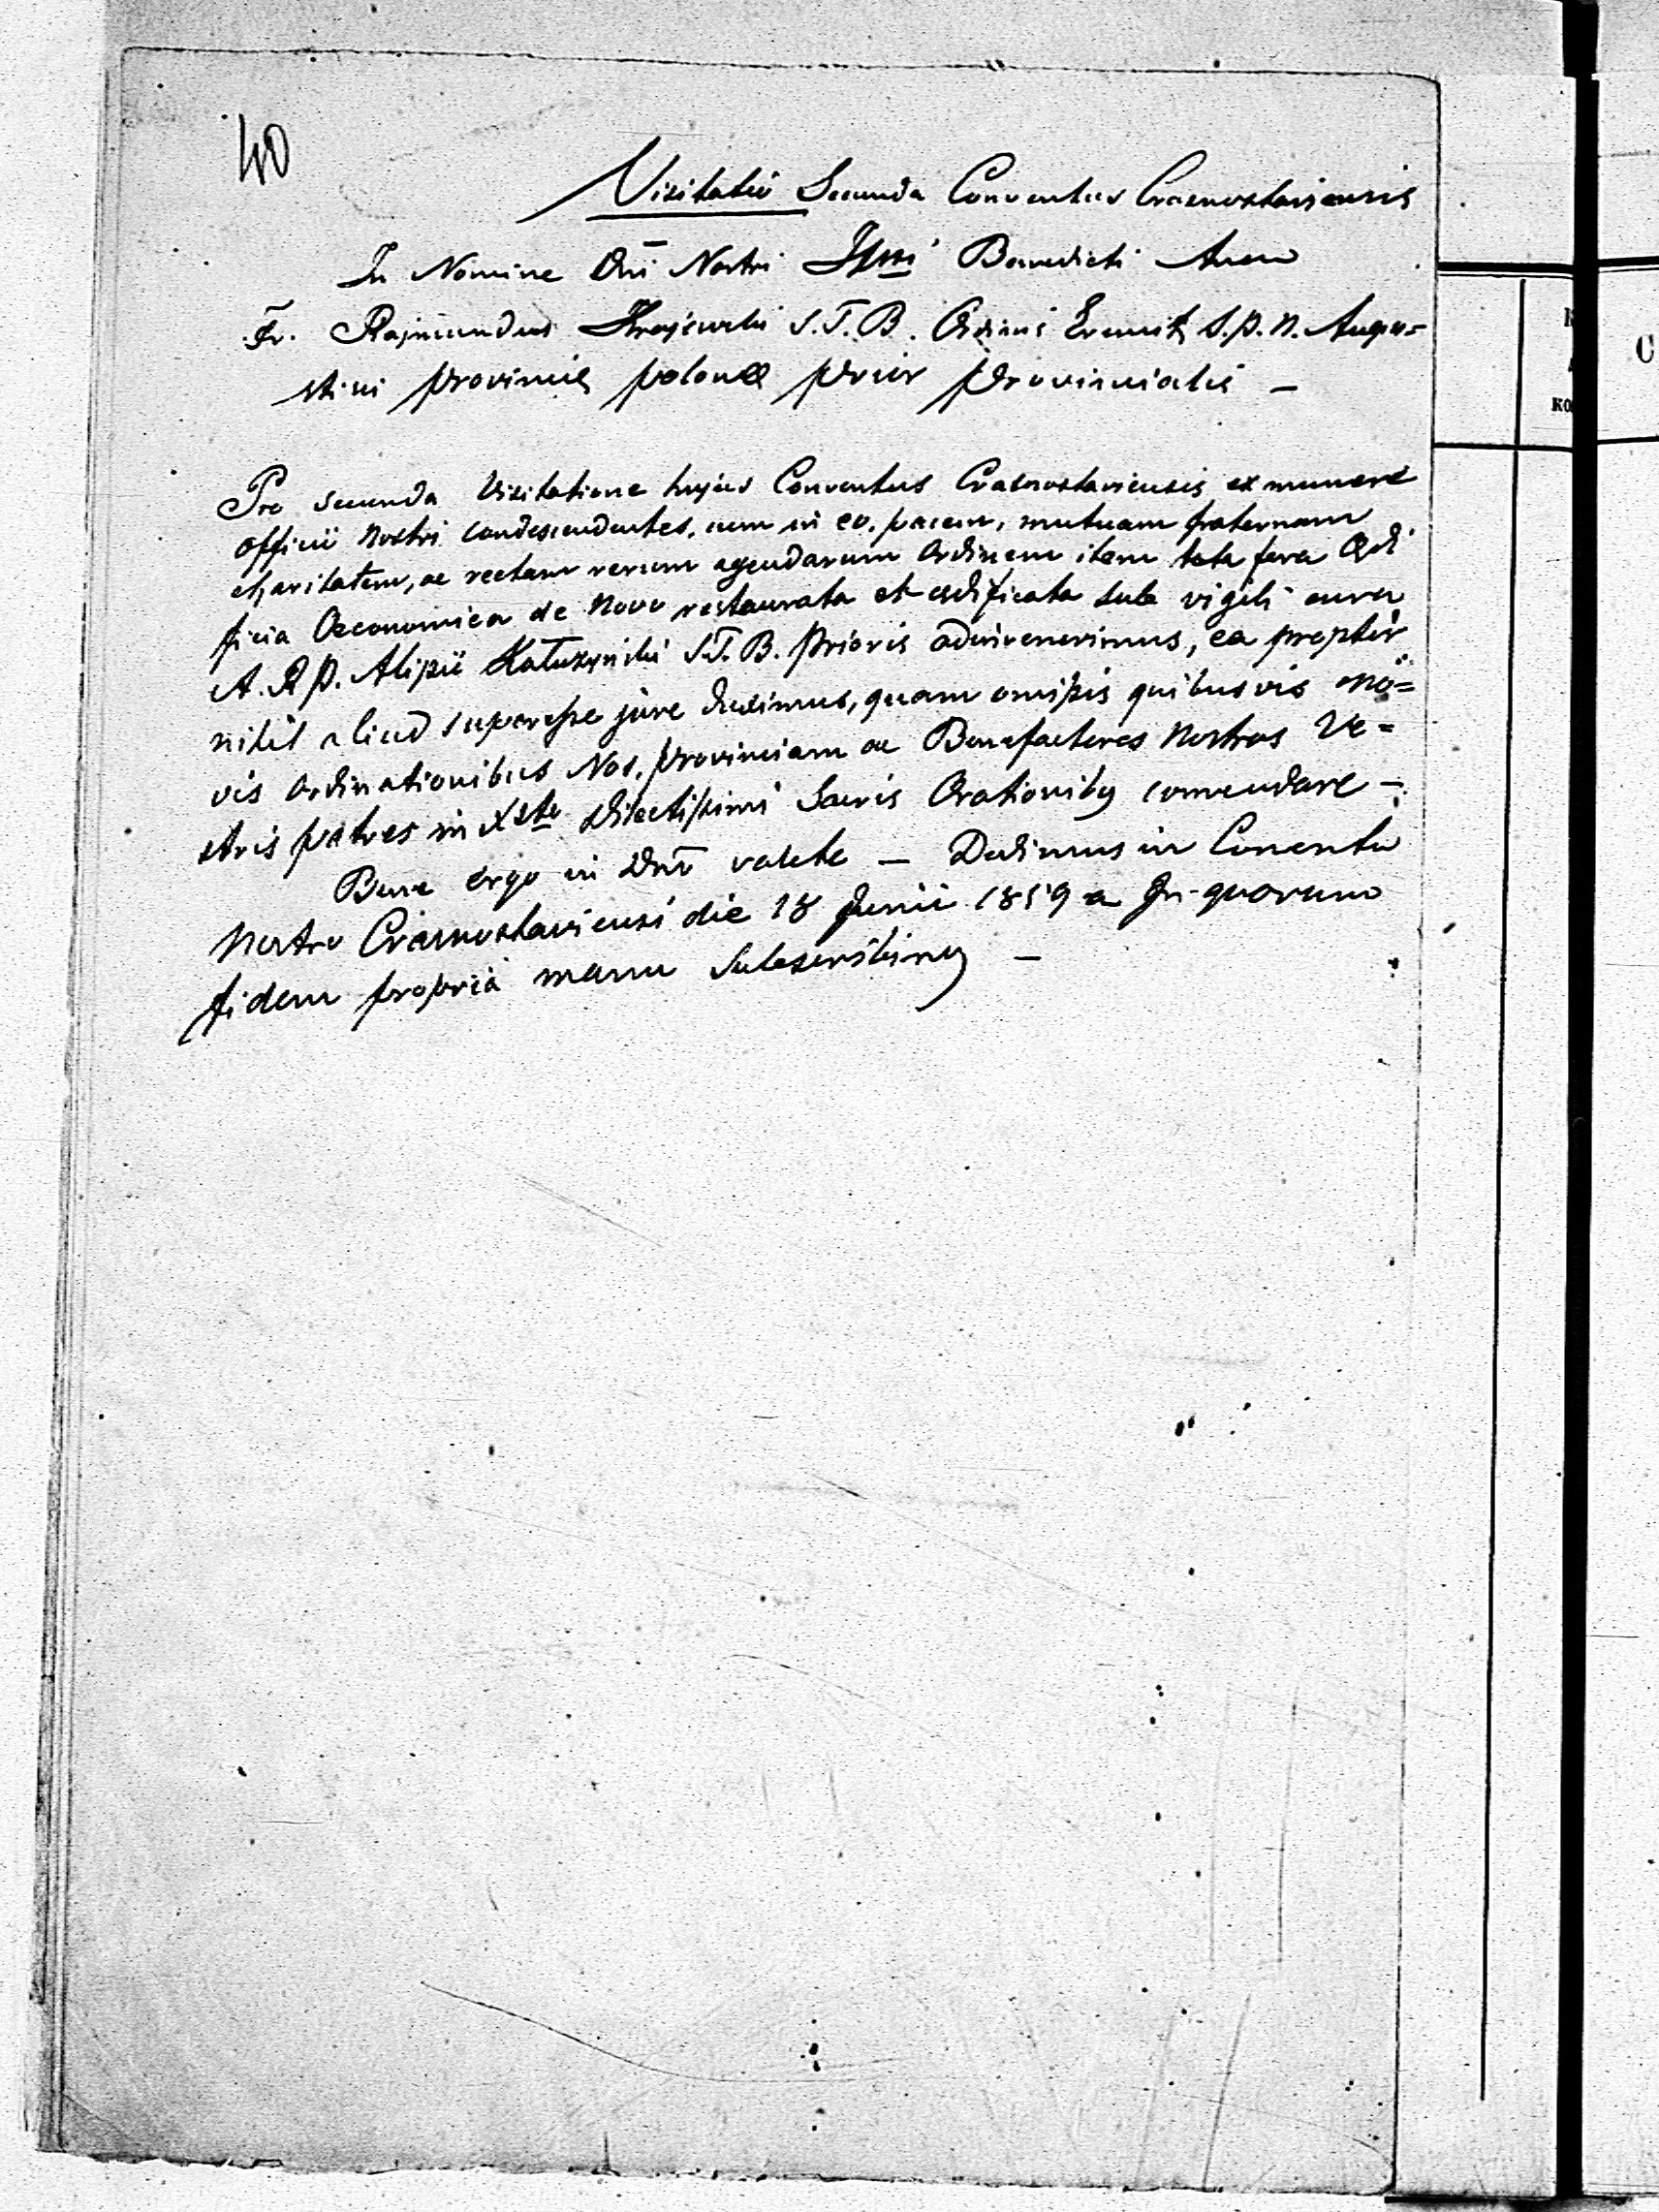 40
Visitatio Secunda Conventus Crasnostaviensis
In Nomine Dni Nostri Benedicti Amen
Fr. Rajmundus Krajewski S.T.B. Ordinis Eremit. S.P.N. Augu=
stini Provinciæ Polonæ Prior Provincialis —
Pro secunda Visitatione hujus Conventus Crasnostaviensis ex munere
officii nostri condescendentes, cum in eo, pacem, mutuam fraternam
charitatem, ac rectam rerum agendarum Ordinem item tota fera Ædi
ficia Oeconomica de Novo restaurata et ædificata sub vigili cura
A. R. P. Alipii Kałuzynski S.T.B. Prioris adinvenerimus, ea propter
nihil aliud superesse jure duximus, quam omissis quibusvis No=
vis Ordinationibus Nos, Provinciam ac Benefactores Nostros Ve=
stris Patres in Xsto dilectissimi Sacris Orationibq commendare —
Bene ergo in Dno valete — Dedimus in Conventu
Nostro Crasnostaviensi die 18 Junii 1859 a In quorum
fidem propria manu Subscribimq —
C
ко